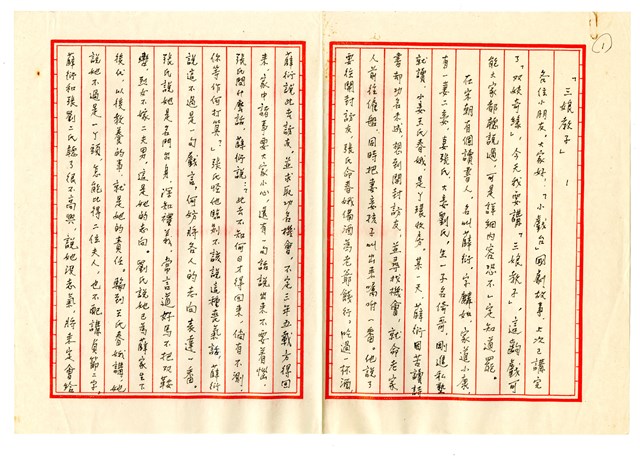 ①
「三娘教子」
各位小朋友，大家好，「小戲台」国劇故事，上次已講完
了「双姣奇緣」，今天我要講「三娘教子」，這齣戲可
能大家都聽說過，可是詳細內容恐不一定知道罷。
在宋朝有個讀書人，名叫薛衍，字麟如，家道小康，
有一妻二妾，妻張氏，大妾劉氏，生一子名倚哥，剛進私塾
就讀，小妾王氏春娥，是丫環收房。某一天，薛衍因苦讀詩
書却功名未成，想到開封訪友，並尋找機會，就命老家
人前往僱船，同時把妻妾孩子叫出來囑咐一番。他說了
要往開封訪友，張氏命春娥備酒為老爺餞行。吃過一杯酒
薛衍說此去訪友，並求取功名機會，不定三年五載方得回
來，家中諸事要大家小心，還有一句話說出來不要着惱。
張氏問什麼話，薛衍說：此去不知何日才得回來，倘有不測，
你等作何打算？張氏怪他臨別不該說這種喪氣話，薛衍
說這不過是一句戲言，何妨將各人的志向表達一番。
張氏說她是名門出身，深知禮義，常言道好馬不把双鞍
轡，烈女不嫁二夫男，這是她的志向。劉氏說她已為薛家生下
後代，以後教養的事，就是她的責任。輪到王氏春娥講，她
說她不過是一丫頭，怎能比得二位夫人，也不配講貞節二字。
薛衍和張劉二氏聽了很不高興，說她沒志氣，將來定會給